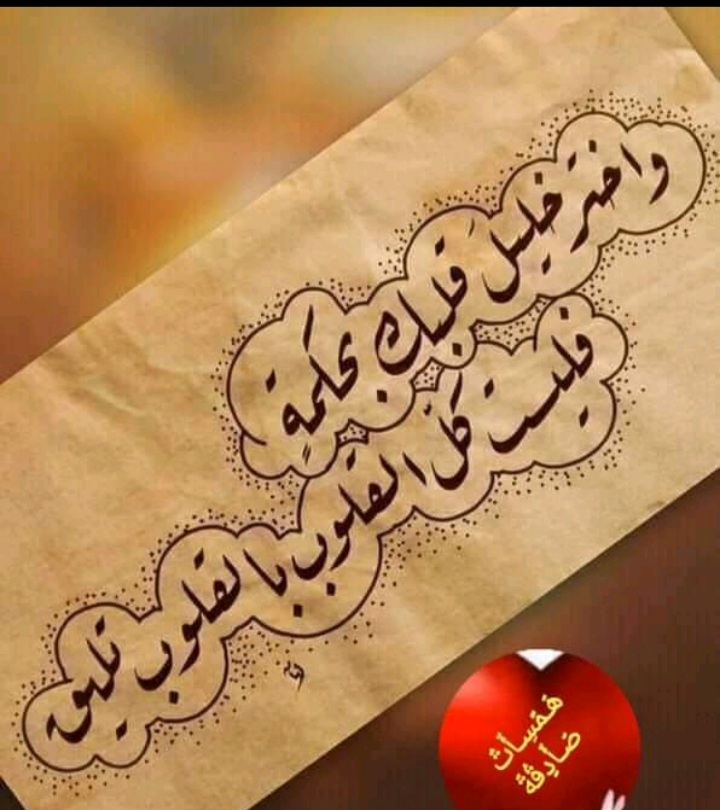 واختر خليل قلبك بحكمةٍ
فليست كلّ القلوب بالقلوب تليق
همسات
صادقة